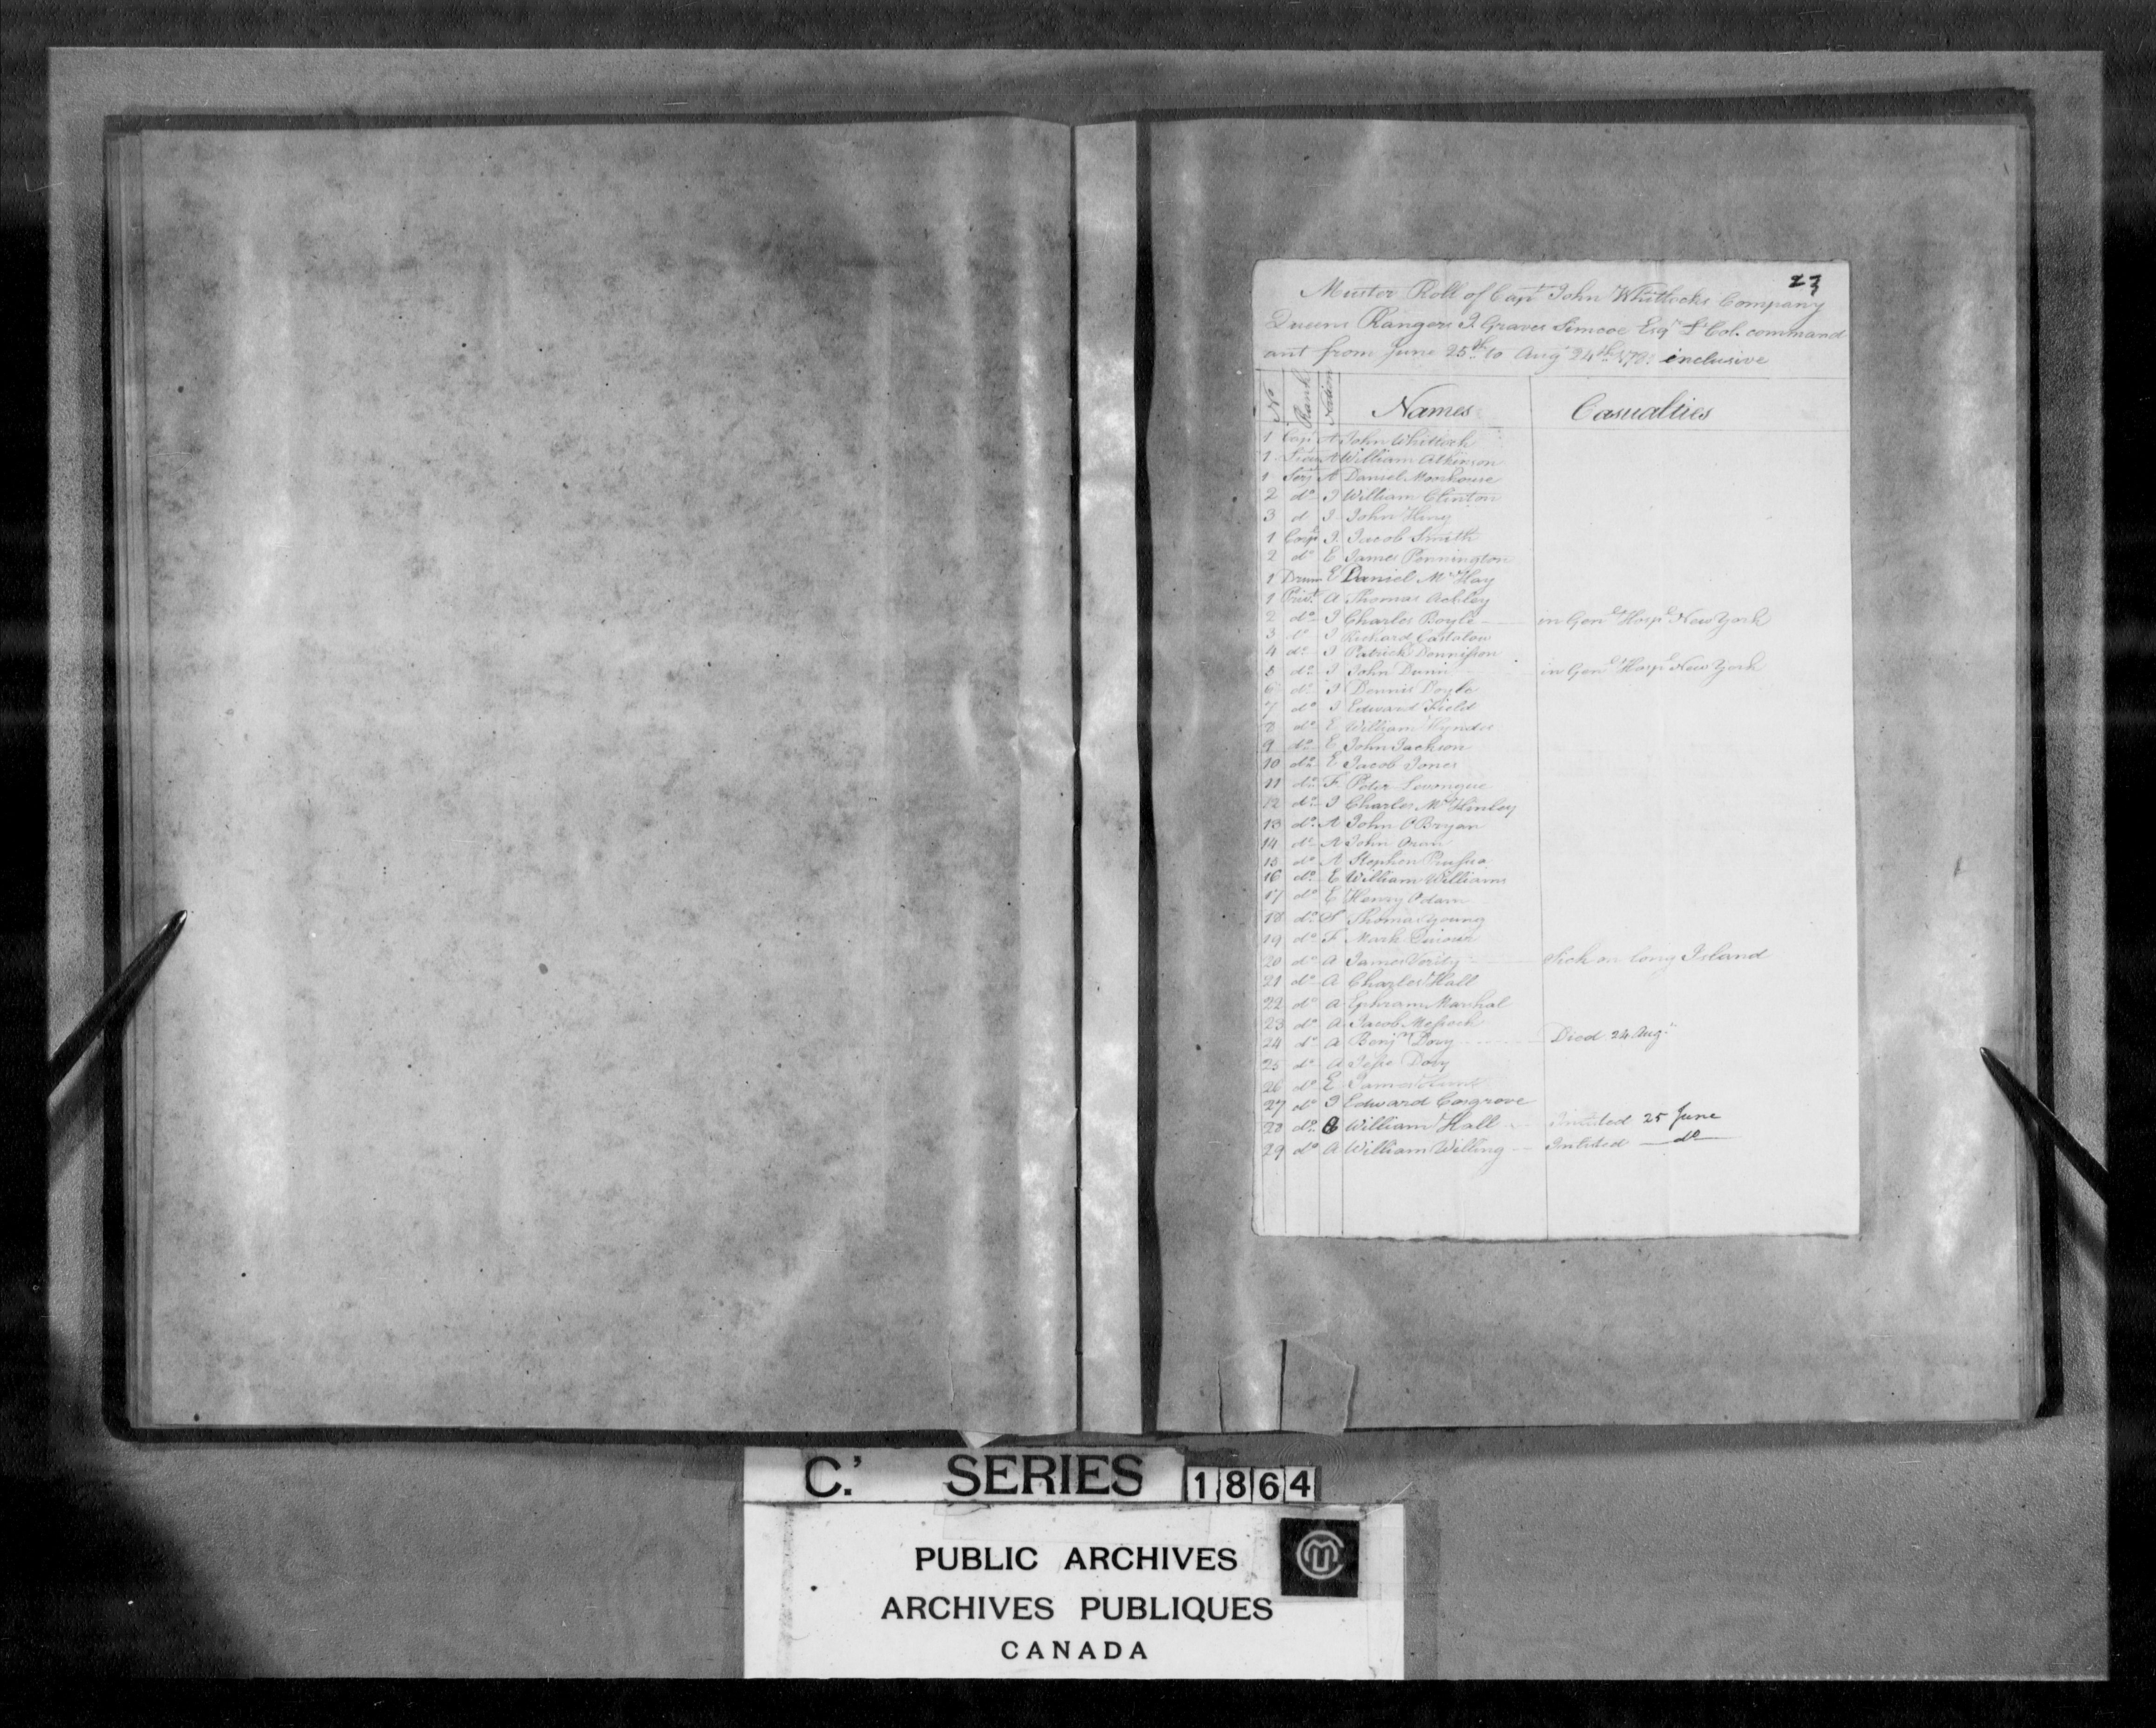 23
Muster Roll of Capt John Whitlocks Company
Queens Rangers J. Graves Simcoe Esqr Lt Col. command
ant from June 25th to Augt 24th 178 inclusive
No Rank Nation Names Casualties
1 Capt A John Whitlock
1 A William Atkinson
1 Serj A Daniel Moorhouse
2 do I William Clinton
3 d I John King
1 Corpl I Jacob Smith
2 do E James Pennington
1 Drum E Daniel McKay
1 Privt A Thomas Ackley
2 do I Charles Boyle in Genl Hospl New York
3 do I Richard Castalow
4 do I Patrick Dennisson
5 do I John Dunn in Genl Hospl New York
6 do I Dennis Doyle
7 do I Edward Field
8 do E William Hynder
9 do E John Jackson
10 do E Jacob Jones
11 do F Peter
12 do I Charles McKinley
13 do A John O Bryan
14 do A John
15 do A Stephen
16 do E William Williams
17 do E Henry Adam
18 do Thomas Young
19 do F Mark
20 do A James Verity Sick on long Island
21 do A Charles Hall
22 do A Ephraim Marshal
23 do A Jacob
24 do A Benjn Dovy Died 24 Augt
25 do A Jesse Dovy
26 do E James Hunt
27 do I Edward Cosgrove
28 do William Hall Intisted 25 June
29 do A William Willing Intisted do
C.' SERIES 1864
PUBLIC ARCHIVES
ARCHIVES PUBLIQUES
CANADA